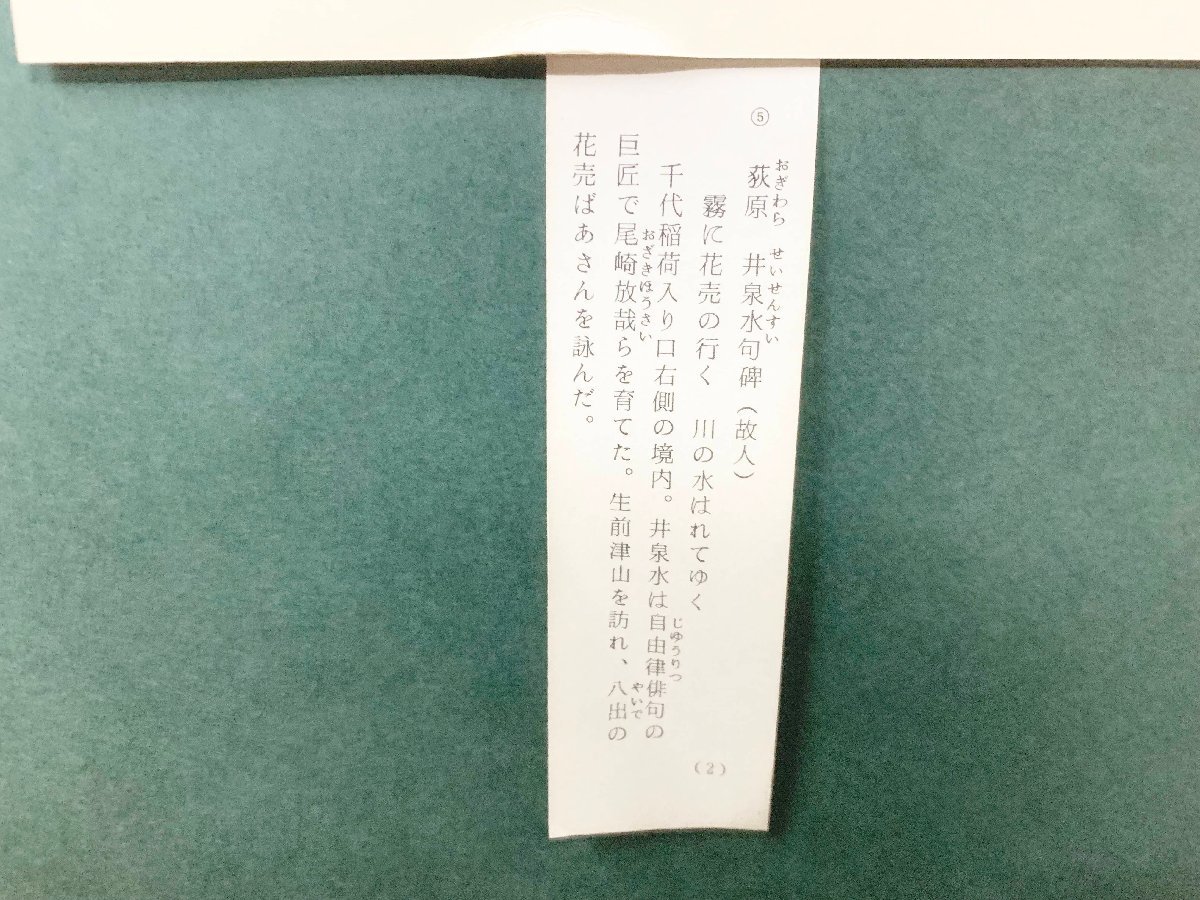 ⑤ 荻原 井泉水句碑(故人)
おぎわら せいせんすい
霧に花売の行く 川の水はれてゆく
千代稲荷入り口右側の境内。井泉水は自由律俳句の
じゆうりつ
巨匠で尾崎放哉らを育てた。生前津山を訪れ、八出の
おざきほうさい やいで
花売ばあさんを詠んだ。
(2)